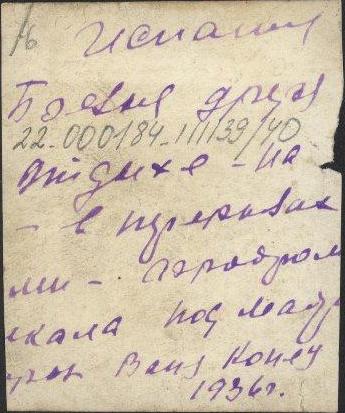 16 Испания
Боевые друзья
22-000184-111139/40
отдыхе - на
- в перерывах
ми - аэродром
кала под Мадр
Ваня Конец
1936г.